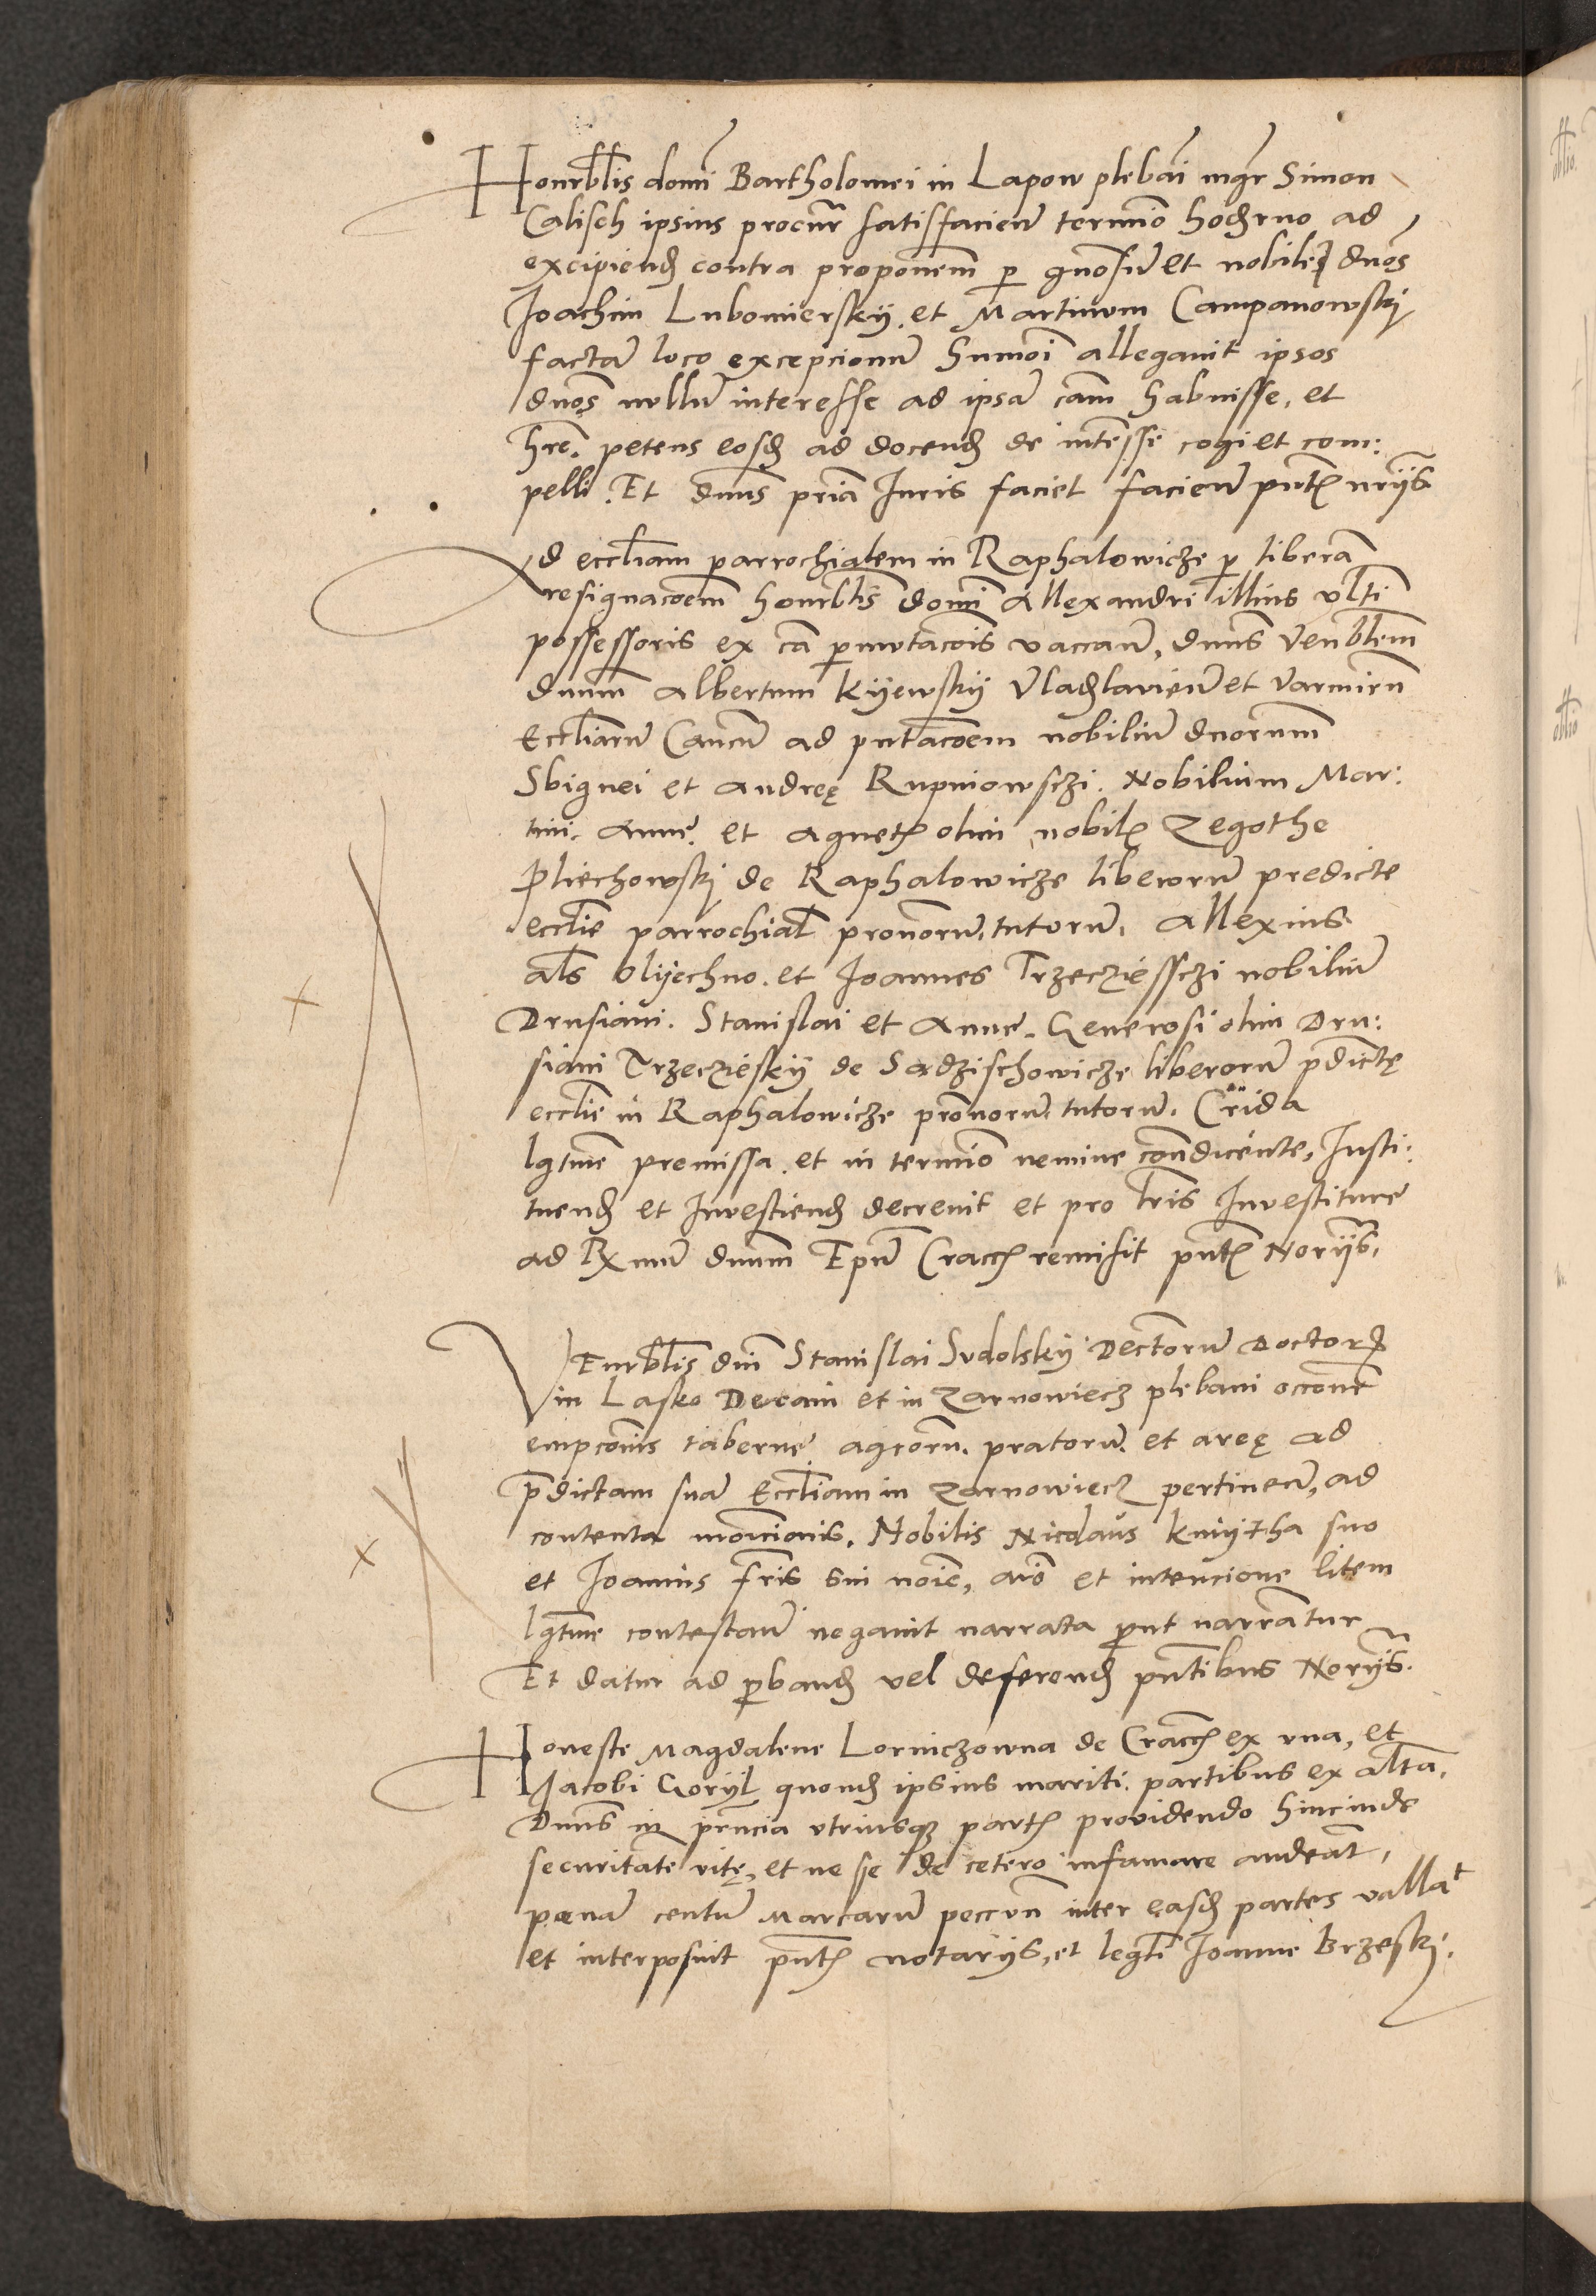 Honrblis domi Bartholomei in Lapow plebāi mgr Simon
Calisch ipsius procur satisfacien termīo hodierno ad
excipiend contra proponem p gnosū et nobile dnos
Joachim Lubomierskÿ et Martinum Campanowskj
factā loco excepcionū Humoī allegauit ipsos
dnos nullū interesse ad ipsā cam habuisse, et
hrē. petens eosd ad docend de intesse cogi et com:
pelli. Et dnus priā Juris faciet facien pntt nrijs
Ad eccliam parrochialem in Raphalowicze p liberā
resignacoem honrblis domi Allexandri illius vlti
possessoris ex cā pmutacois vaccan, dnus Venblem
dnum Albertum Kÿewskÿ Vladlavien et Varmien
Eccliarū Cancū ad pntacoem nobiliū dnorum
Sbignei et Andreę Rupniowsczi. Nobilium Mar:
tini. Anne. et Agnet olim nobil Zegothe
Pliechowskj de Raphalowicze liberorū predicte
ecclie parrochial pronorū, tutorū. Allexius
als Olÿechno. et Joannes Trzecziessczi nobiliū
Drusiani. Stanislai et Anne. Generosi olim Dru:
siani Trzeczieskÿ de Sadzischowicze liberorū pdictę
ecclie in Raphalowicze pronorū tutorū. Crida
lgtme premissa. et in termīo nemine condicente, Insti:
tuend et Inuestiend decreuit et pro lris Inuestiture
ad Rxmū dnum Epū Cracc remisit pntt Norijs.
VEnrblis dni Stanislai Sudolskÿ Dectorū Doctor
in Lasko Decani et in Zarnowiecz plebani occone
empconis taberne agrorū. pratorū. et areę ad
pdictam suā Eccliam in Zarnowiecz pertinen, ad
contenta monicionis. Nobilis Nicolaus Kmÿtha suo
et Joannis fris sui noie, aīo et intencione litem
lgtme contestan negauit narrata put narrantur
Et datur ad pband vel deferend pntibus Norijs.
Honeste Magdalene Lorniczowna de Cracc ex vna, et
Jacobi Gorÿl quond ipsius mariti partibus ex altā,
Dnus in pncia vtriusq part providendo hincinde
securitate vitę, et ne se de cetero infamare audeāt,
penā centū Marcarū peccun inter easd partes vallat
et interposuit pntt notarijs, et legti Joanne Brzeskj.